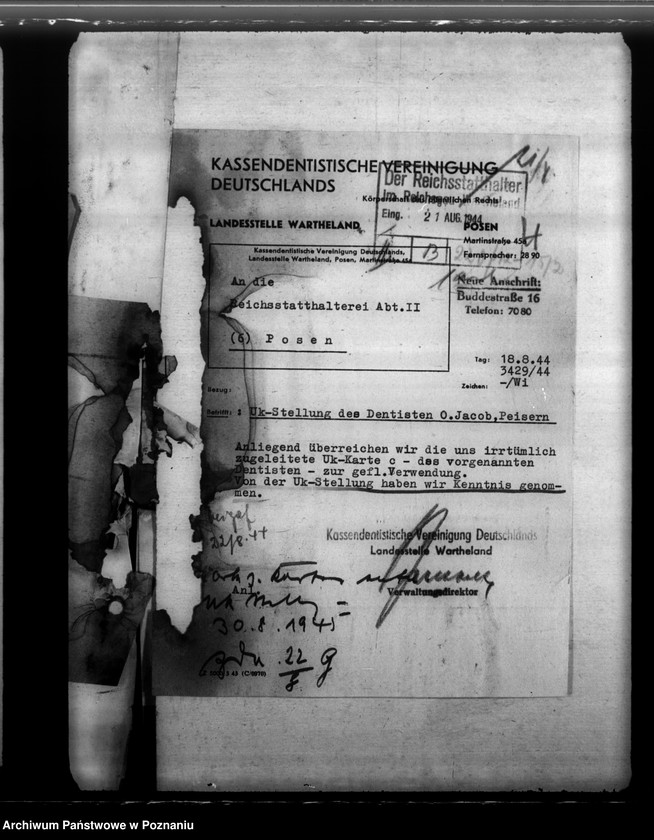 KASSENDENTISTISCHE VEREINIGUNG
DEUTSCHLANDS
Körperschaft des öffentlichen Rechts
Der Reichsstatthalter
im Reichsgau Wartheland
Eing. 21 AUG. 1944
B
LANDESSTELLE WARTHELAND
POSEN
Martinstraße 45a
Fernsprecher: 28 90
Kassendentistische Vereinigung Deutschlands,
Landesstelle Wartheland, Posen, Martinstraße 45a
Neue Anschrift:
Buddestraße 16
Telefon: 7080
An die
Reichsstatthalterei Abt.II
(6) Posen
Tag: 18.8.44
3429/44
Zeichen: -/Wi
Bezug:
Betrifft: Uk-Stellung des Dentisten O.Jacob,Peisern
Anliegend überreichen wir die uns irrtümlich
zugeleitete Uk-Karte c - des vorgenannten
Dentisten - zur gefl.Verwendung.
Von der Uk-Stellung haben wir Kenntnis genom-
men.
22/8.44
Kassendentistische Vereinigung Deutschlands
Landesstelle Wartheland
Verwaltungsdirektor
Anl.
30.8.1945
22/8
Archiwum Państwowe w Poznaniu